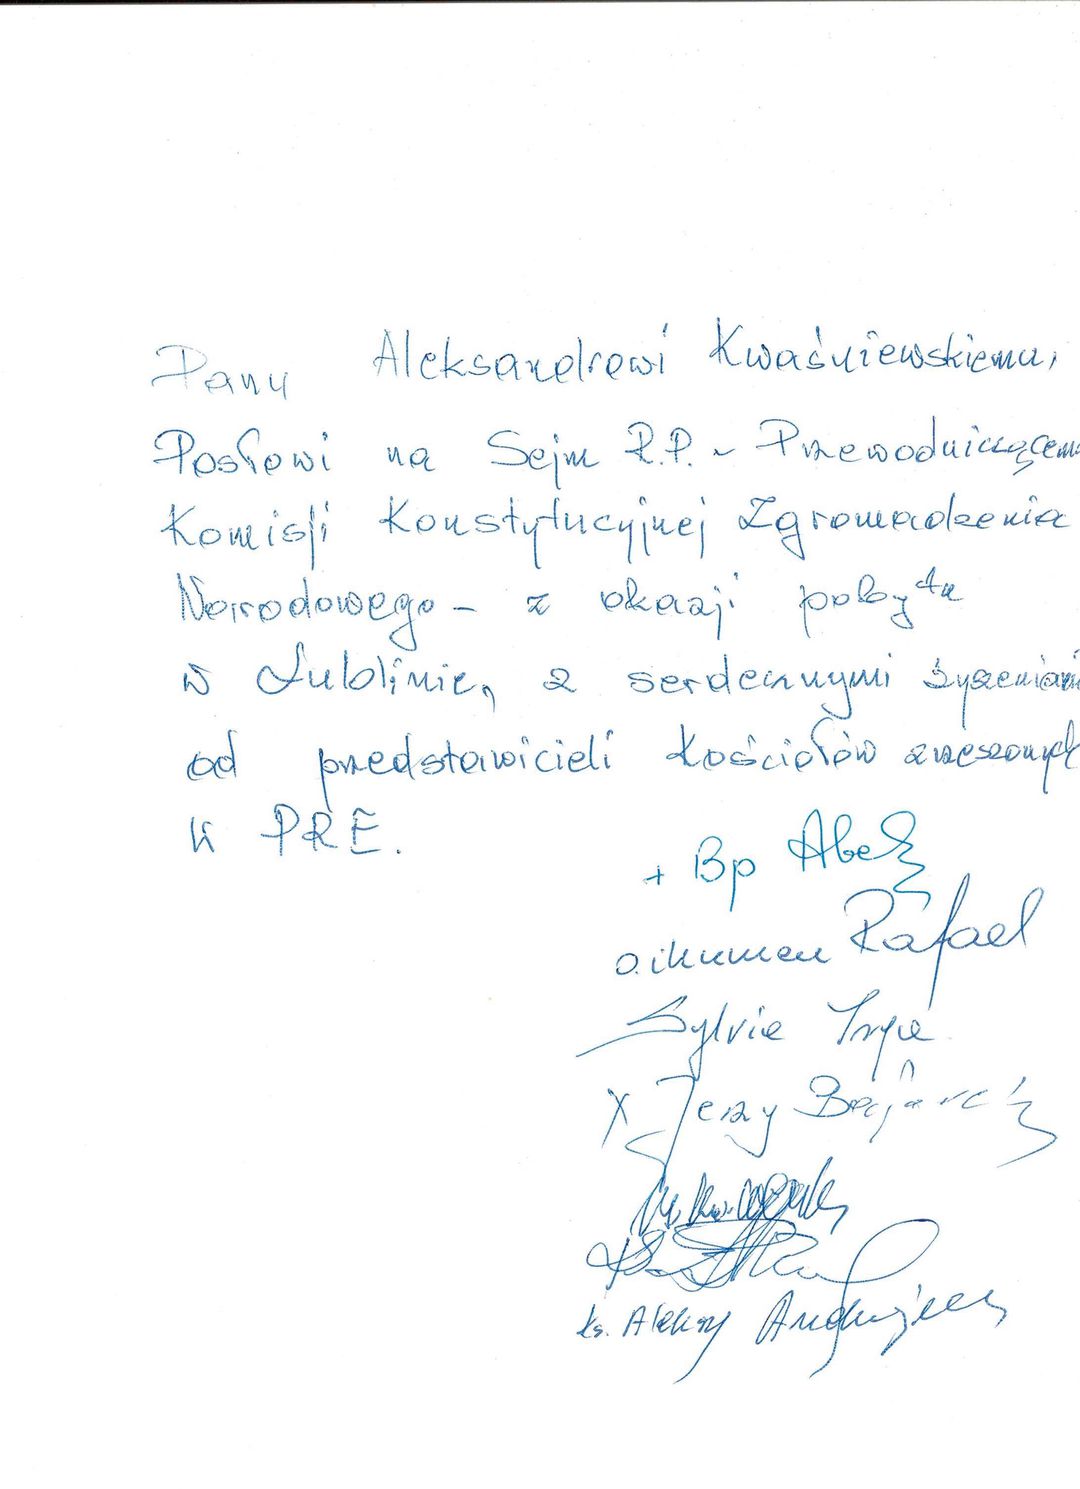 Panu Aleksandrowi Kwaśniewskiemu,
Posłowi na Sejm R.P. - Przewodniczącem
Komisji Konstytucyjnej Zgromadzenia
Narodowego - z okazji pobytu
w Lublinie, z serdecznymi życzeniam
od przedstawicieli Kościołów zrzeszonych
w PRE.
+ Bp Abel
o. ihumen Rafael
Sylvia
X Jerzy
ks. Aleksy